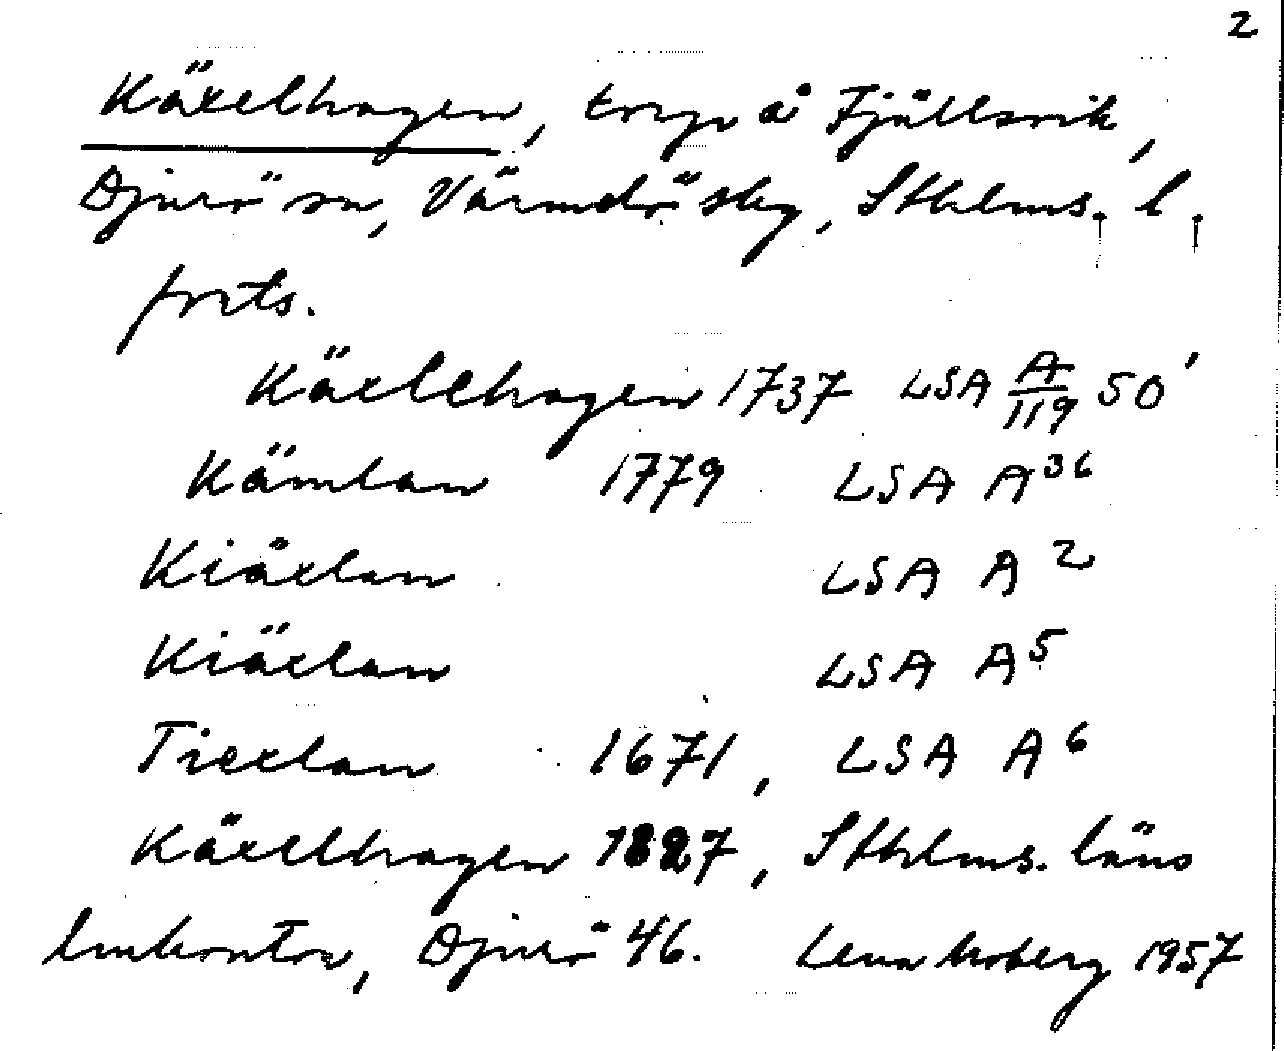 2
Käxelhagen, torp å Fjällsvik,
Djurö sn, Värmdö skg, Sthlms. l.
forts.
Käxlehagen 1737 LSA A/119 50'
Kämlan 1779 LSA A 36
Kiäxlan LSA A 2
Kiäxlan LSA A 5
Tiexlan 1671, LSA A 6
Käxelhagen 1827, Sthlms. läns
lmkontor, Djurö 46. Lena Moberg 1957